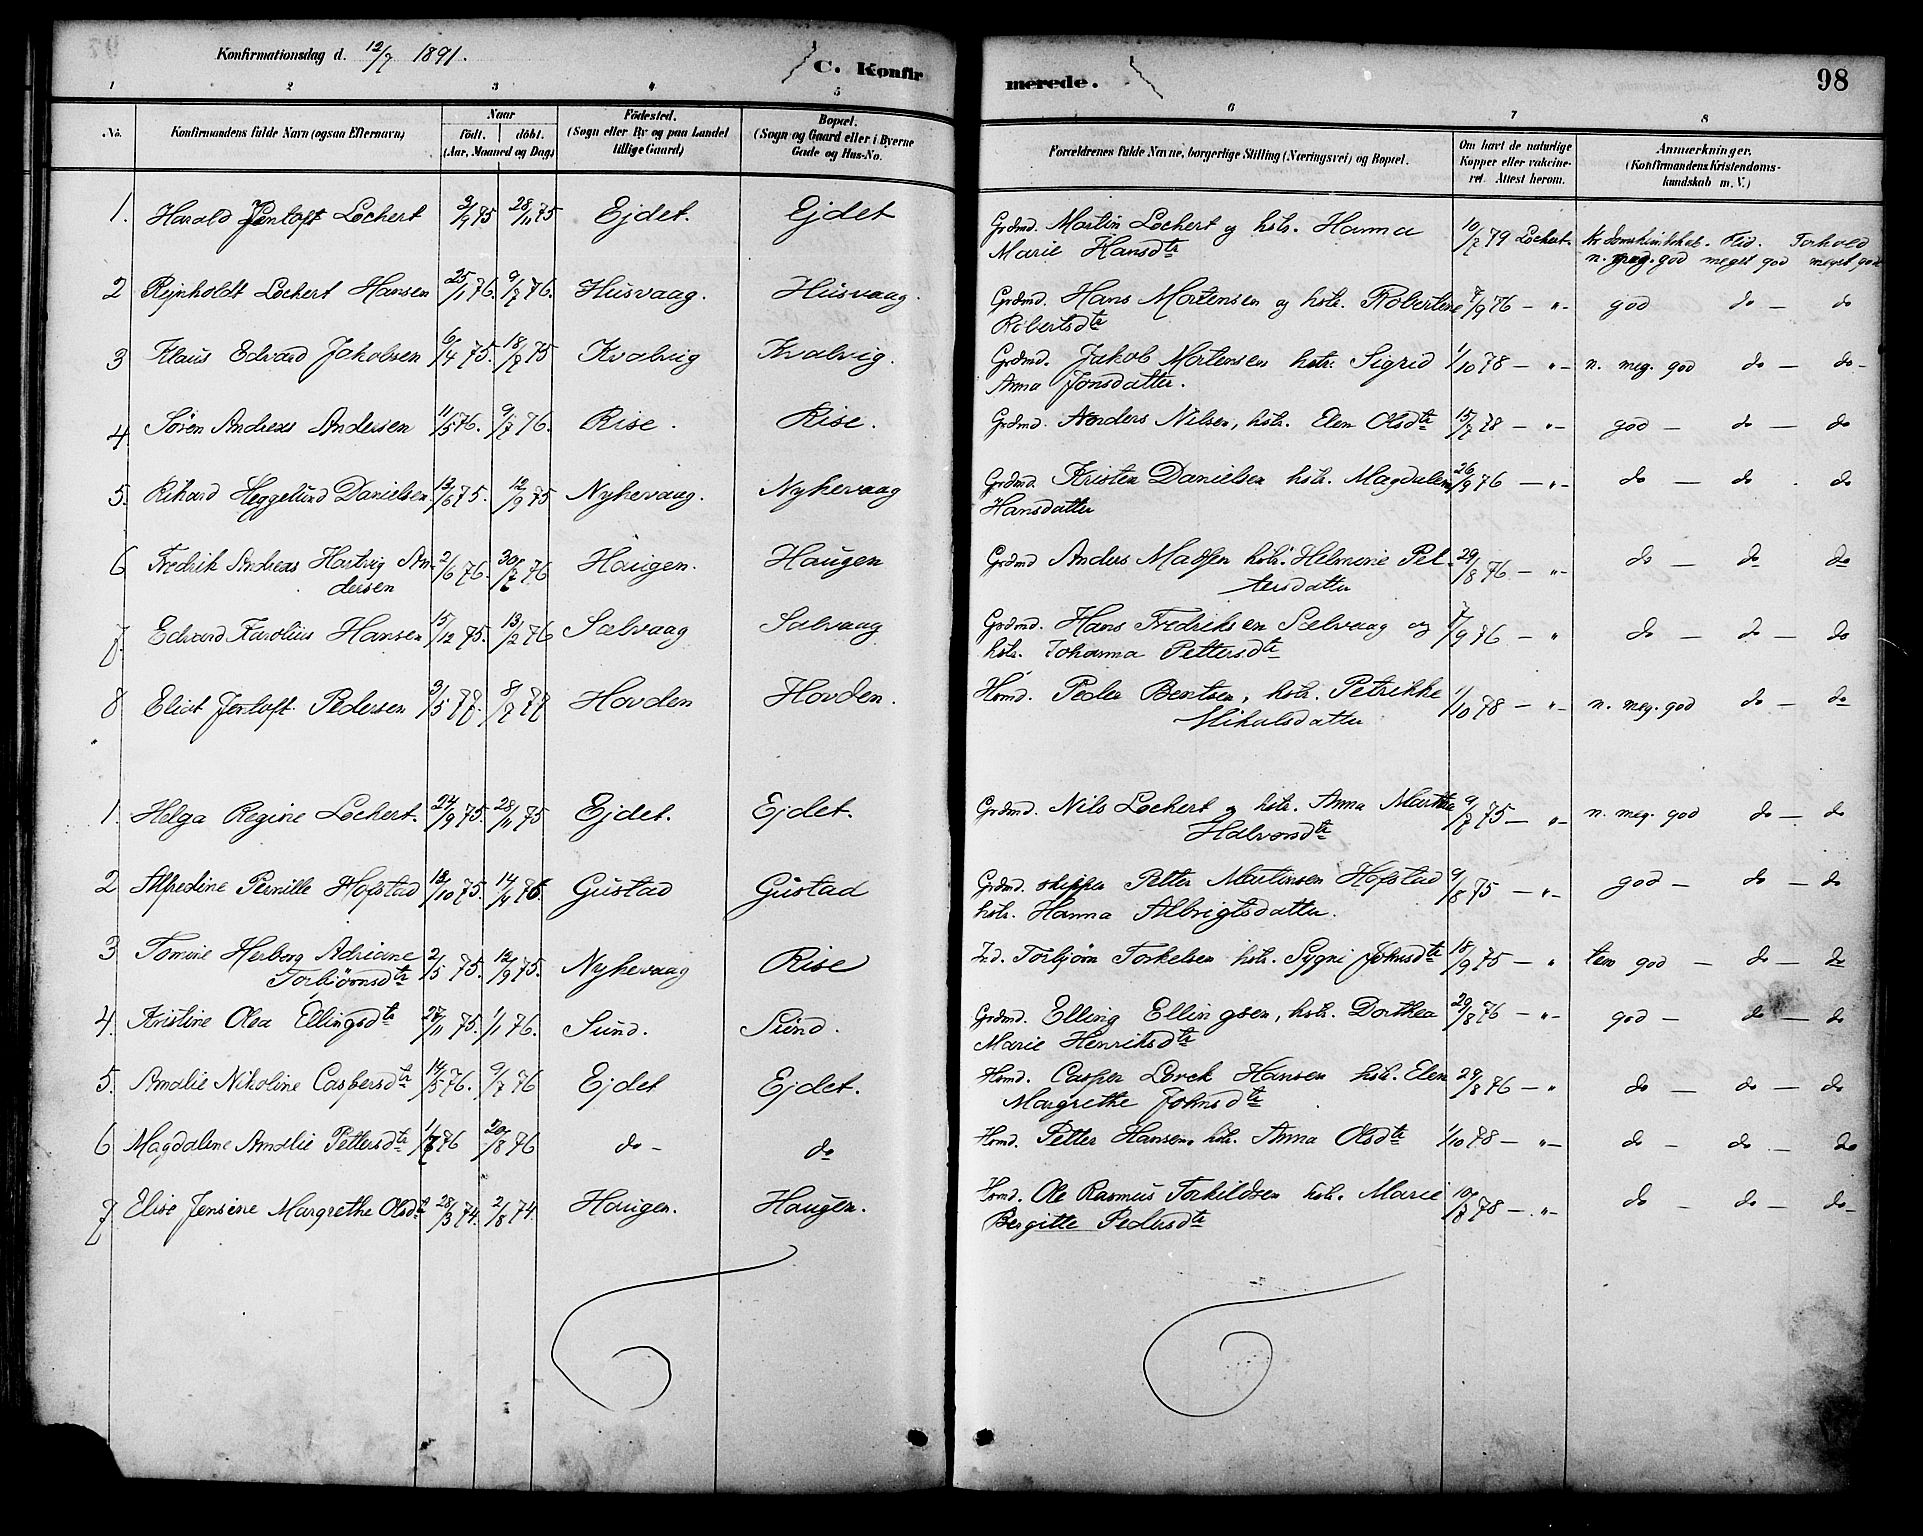 Konfirmationsdag d. 12/7 1891.
C. Konfirmerede.
98
1 2 3 4 5 6 7 8
No. Konfirmandens fulde Navn (ogsaa Efternavn) Naar født. døbt. (Aar, Maaned og Dag) Fødested. (Sogn eller By og paa Landet tillige Gaard) Bopæl. (Sogn og Gaard eller i Byerne Gade og Hus-No. Forældrenes fulde Navne, borgerlige Stilling (Næringsvei) og Bopæl. Om havt de naturlige Kopper eller vakcineret. Attest herom. Anmærkninger. (Konfirmandens Kristendomskundskab m. V.)
1. Harald Jentoft Lockert 75 28/11 75 Ejdet. Ejdet Grdmd. Martin Lockert og hstr. Hanna 10/7 79 Lockert Flid. Forhold
Marie Hansdtr n. meg. god meget god meget god
2 Rejnholdt Lockert Hansen 25/1 76. 9/7 76. Husvaag. Husvaag. Grdmd. Hans Mortensen og hstr. Robertine 7/9 76 — " — god do — do
Robertsdtr
3 Klaus Edvard Jakobsen 6/4 75. 18/7 75 Kvalvig Kvalvig. Grdmd. Jakob Mortensen hstr. Sigrid 1/10 78 — " — n. meg. god do — do
Anna Jonsdatter.
4 Søren Andreas Andersen 11/5 76. 9/7 76. Rise. Rise. Grdmd. Anders Nilsen, hstr. Elen Olsdtr 15/7 78 — " — god — do — do
5. Rikard Heggelund Danielsen 13/6 75. 12/9 75 Nykevaag. Nykevaag Grdmd. Kristen Danielsen hstr. Magdalena 26/9 76 — " — do — do . do
Hansdatter
6 Fredrik Andreas Hartvig An- 2/6 76. 30/7 76 Haugen. Haugen Grdmd Anders Madsen hstr. Helmine Pet- 29/8 76 — " — do — do do
dersen tersdatter
7. Edvard Karolius Hansen 15/12 75. 13/2 76 Salvaag Salvaag Grdmd. Hans Fredriksen Selvaag og 7/9 76 — " do — do — do
hstr. Johanna Pettersdtr
8 Eliot Jentoft Pedersen 3/5 77. 8/7 77 Hovden Hovden. Hsmd. Peder Bentsen, hstr. Petrikke 1/10 78 — " — n. meg. god do — do
Mikalsdatter
1. Helga Regine Lockert. 24/9 75. 28/11 75 Ejdet. Ejdet. Grdmd. Nils Lockert og hstr. Anna Martha 9/7 75 — " — n. meg. god do — do
Halvorsdtr
2 Alfredine Pernille Hofstad 18/10 75. 14/4 76. Gustad Gustad Grdmd. skipper Petter Martinsen Hofstad 9/8 75 — " — god — do — do
hstr. Hanna Albrigtsdatter.
3 Tomine Herborg Adriane 2/5 75. 12/9 75. Nykevaag Rise Ind. Torbjørn Torkelsen hstr. Sygni Johnsdtr 18/9 75 — " tem god — do — do
Torbjørnsdtr
4. Kristine Olea Ellingsdtr 27/11 75. 1/1 76. Sund. Sund. Grdmd. Elling Ellingsen, hstr. Dorthea 29/8 76 — " — god — do — do
Marie Henriksdtr
5. Amalie Nikoline Caspersdtr 14/5 76. 9/7 76 Ejdet Ejdet. Hsmd. Casper Lorck Hansen hstr. Elen 29/8 76 — " do — do — do
Margrethe Johnsdtr
6 Magdalene Amalie Pettersdtr 1/7 76 20/8 76 do — do Hsmd. Petter Hansen hstr. Anna Olsdtr 1/10 78 — " — do — do — do
7 Elise Jensine Margrethe Olsdtr 28/3 74. 2/8 74. Haugen. Haugen. Hsmd. Ole Rasmus Torkildsen hstr. Marie 10/7 78 — " — do — do — do
Bergitte Pedersdtr